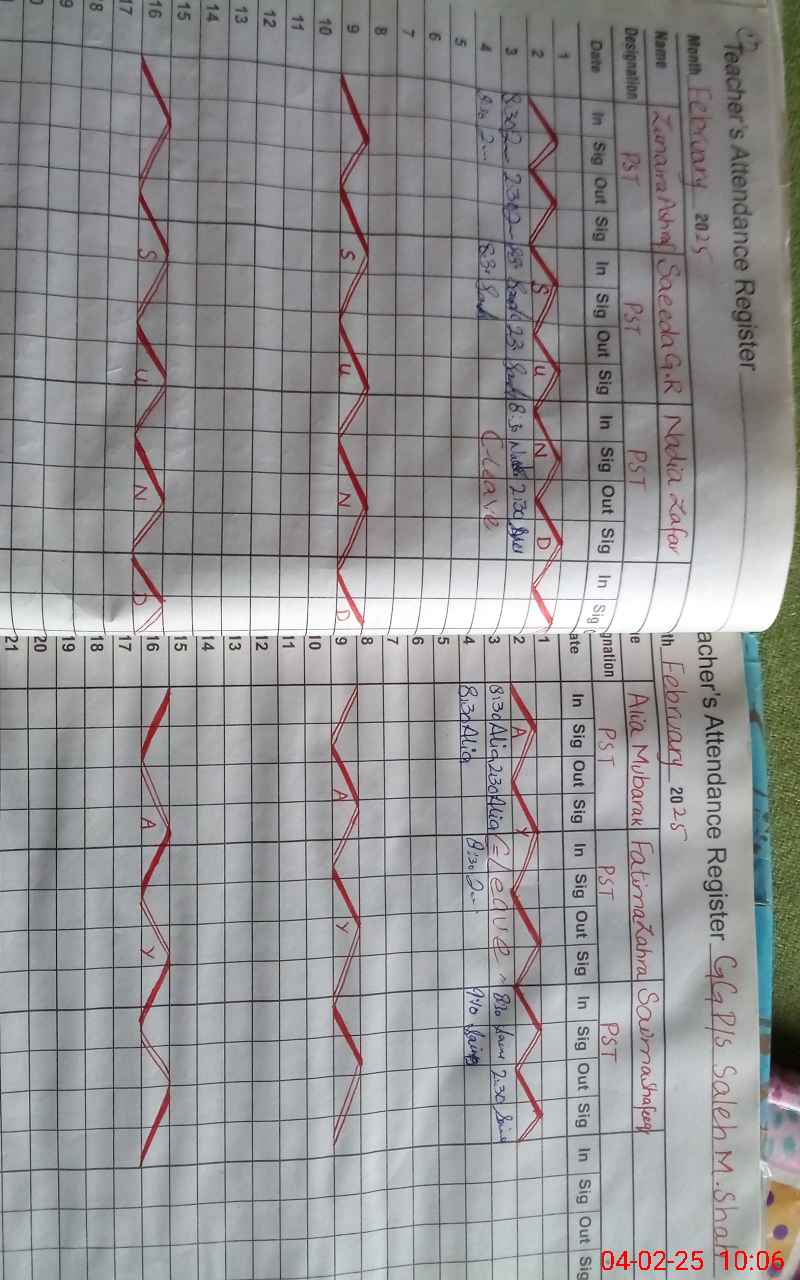 Teacher's Attendance Register
Month February 2025
Name Zunaira Ashraf Saeeda G.R Nadia Zafar
Designation PST PST PST
Date In Sig Out Sig In Sig Out Sig In Sig Out Sig In Sig
1
2 S U N D
3 8:30 2:30 8:30 2:30
4 8:30 C-leave
5
6
7
8
9 S U N D
10
11
12
13
14
15
16 S U N D
17
18
19
acher's Attendance Register GGP/S Saleh M. Shah
th February 2025
e Alia Mubarak Fatima Zahra Saima Shafeeq
gnation PST PST PST
ate In Sig Out Sig In Sig Out Sig In Sig Out Sig In Sig Out Sig
1
2 A Y
3 8:30 Alia 2:30 Alia C-Leave 2:30
4 8:30 Alia 8:30
5
6
7
8
9 A Y
10
11
12
13
14
15
16 A Y
17
18
19
20
21
04-02-25 10:06